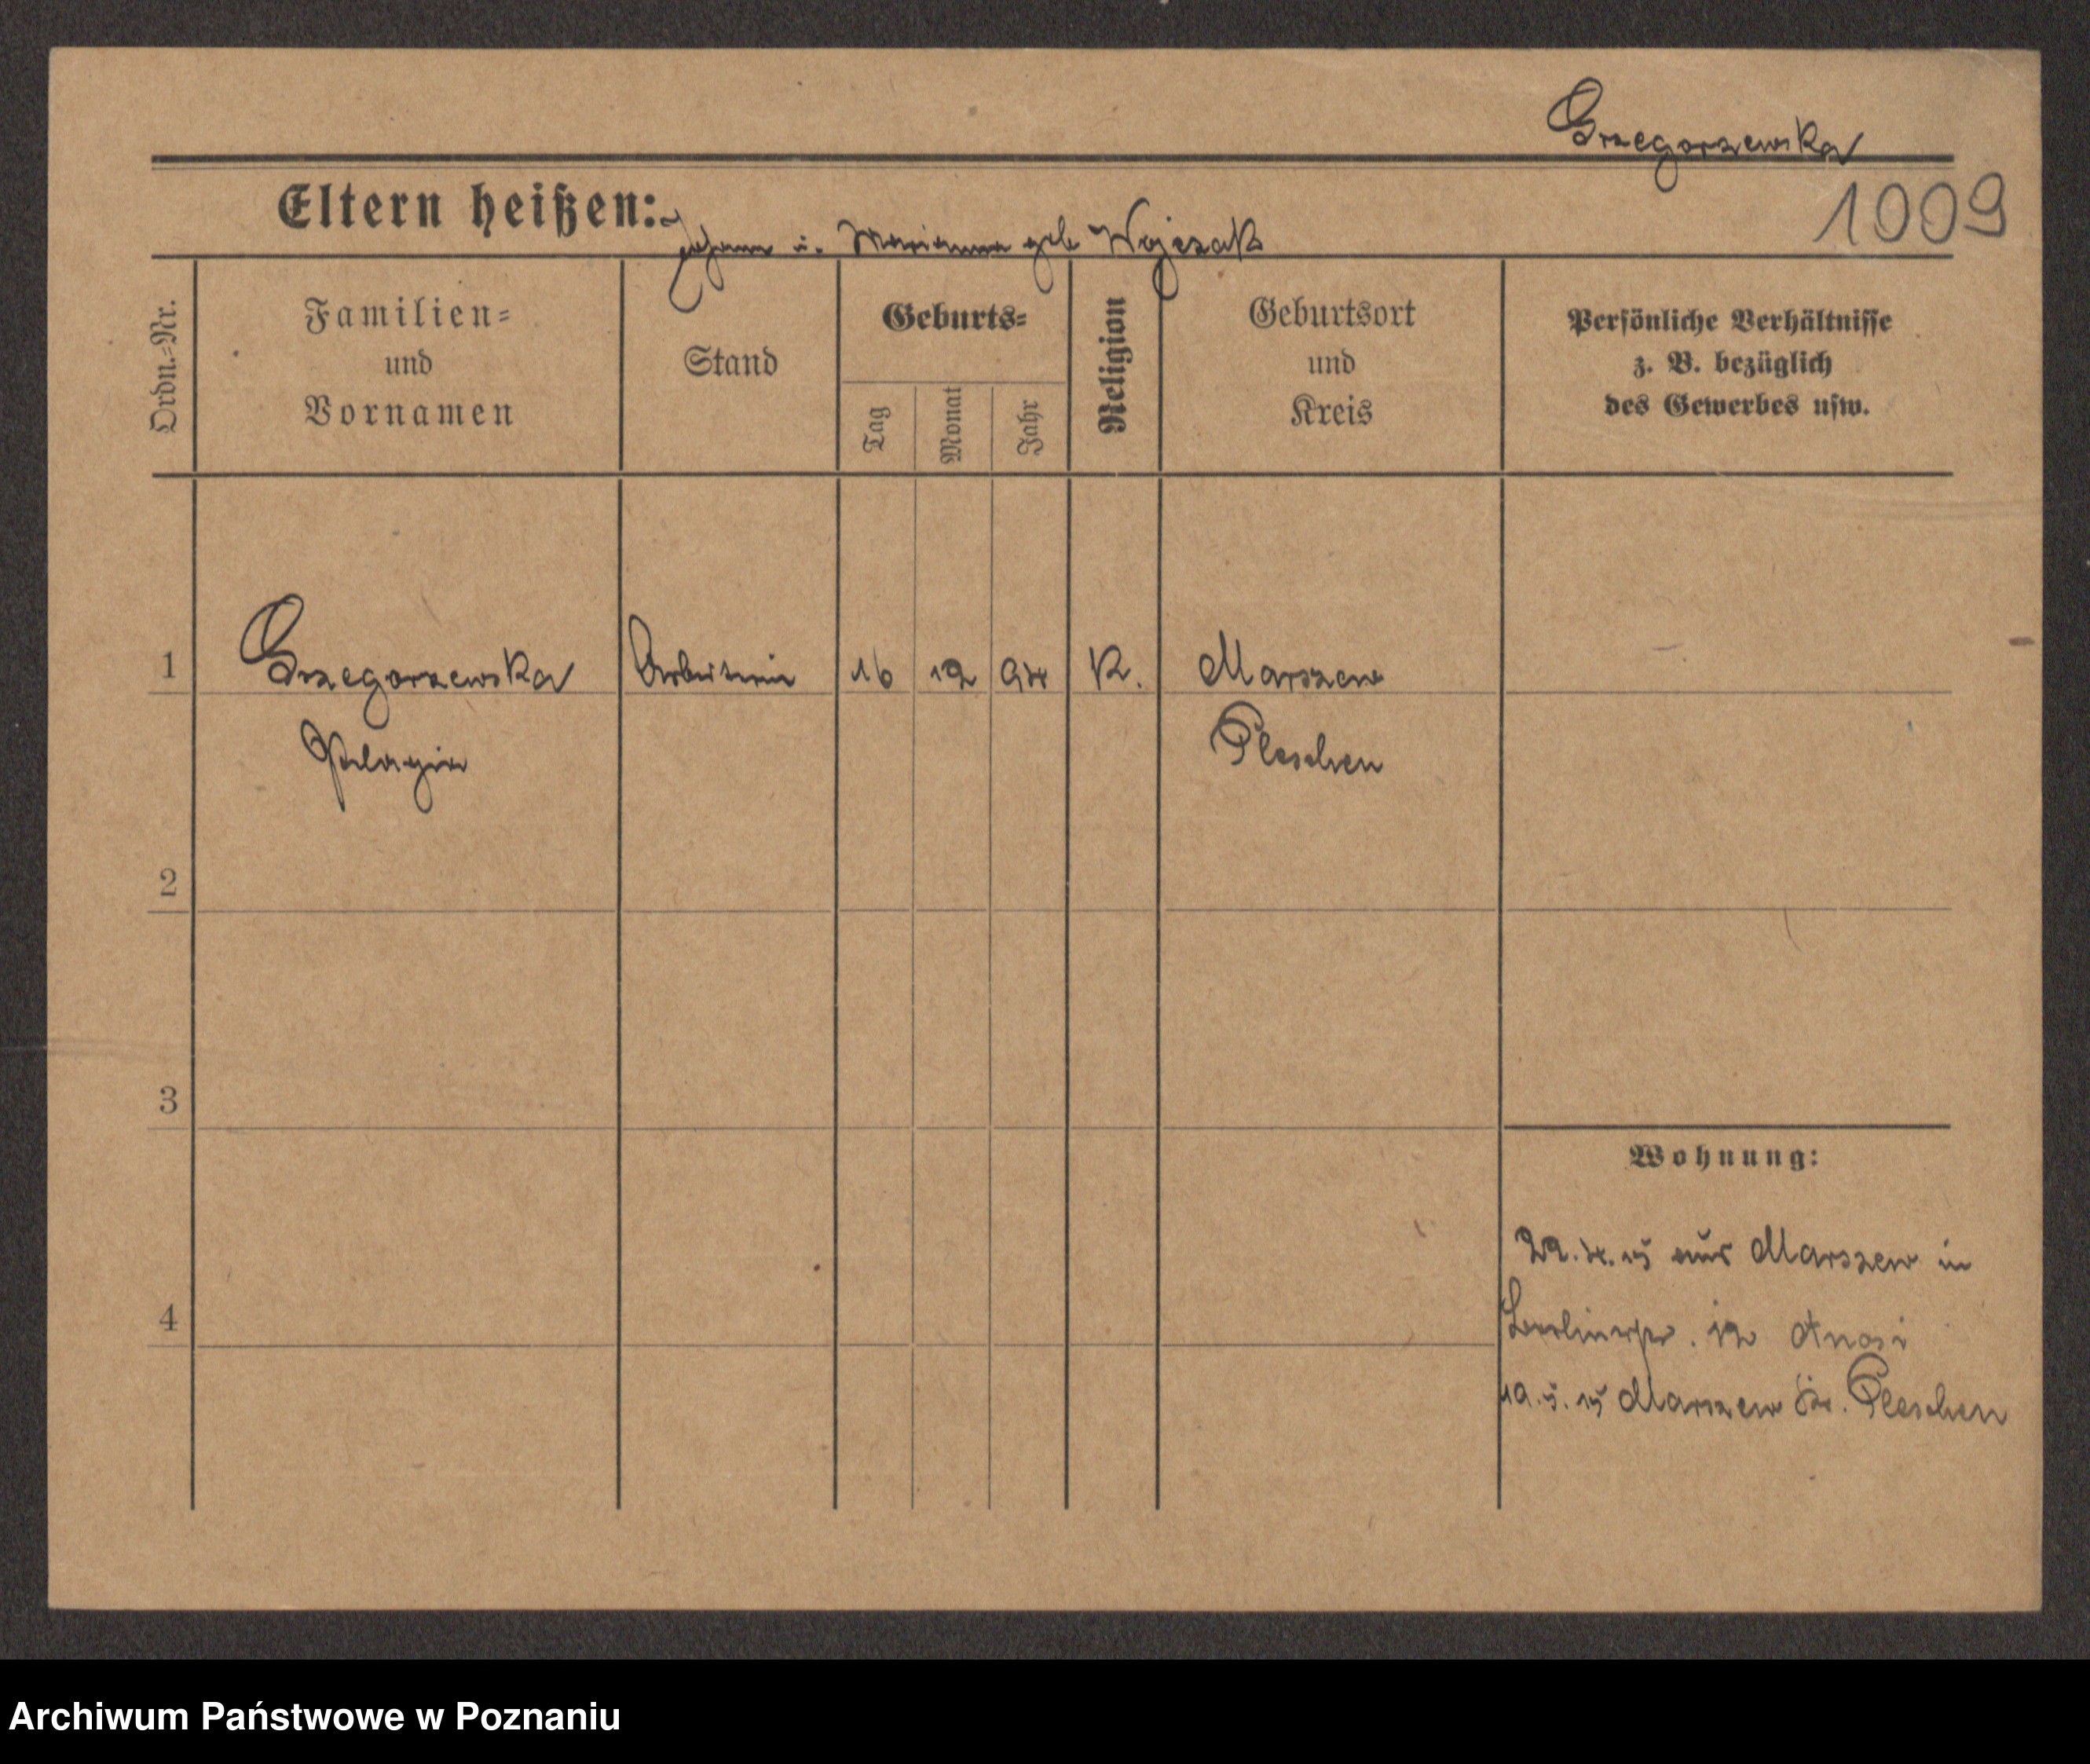 Grzegorzewska
1009
Eltern heißen: Johann u. Marianna geb Wojczak
Ordn.=Nr.
Familien=
und
Vornamen
Stand
Geburts=
Tag
Monat
Jahr
Religion
Geburtsort
und
Kreis
Persönliche Verhältnisse
z. B. bezüglich
des Gewerbes usw.
1 Grzegorzewska Arbeiterin 16 12 94 K. Marszew
Pelagia Pleschen
2
3
Wohnung:
22.4.15 aus Marszew in
4
Berlinerstr. 12
19.5.15 Marszew Kr. Pleschen
Archiwum Państwowe w Poznaniu